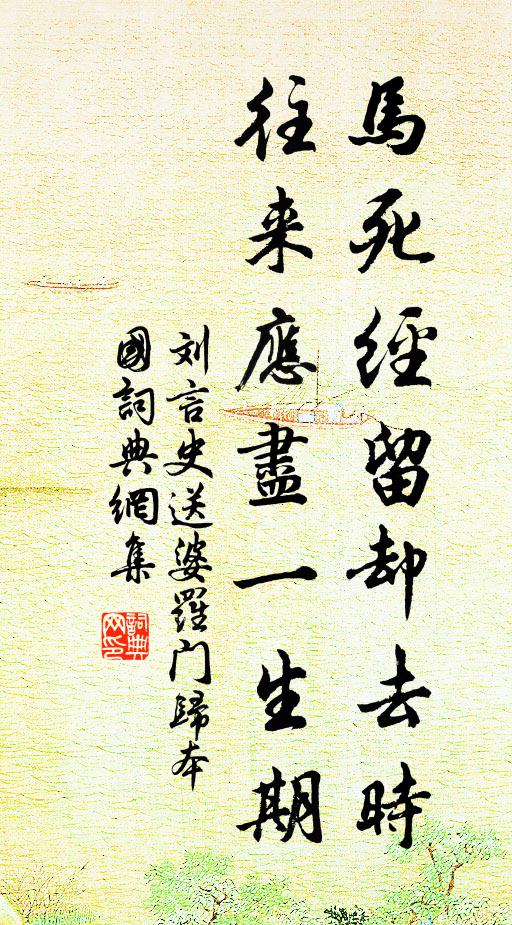 馬死經留却去時
往来應盡一生期
刘言史送婆羅门歸本
國詞典網集
詞典
网印